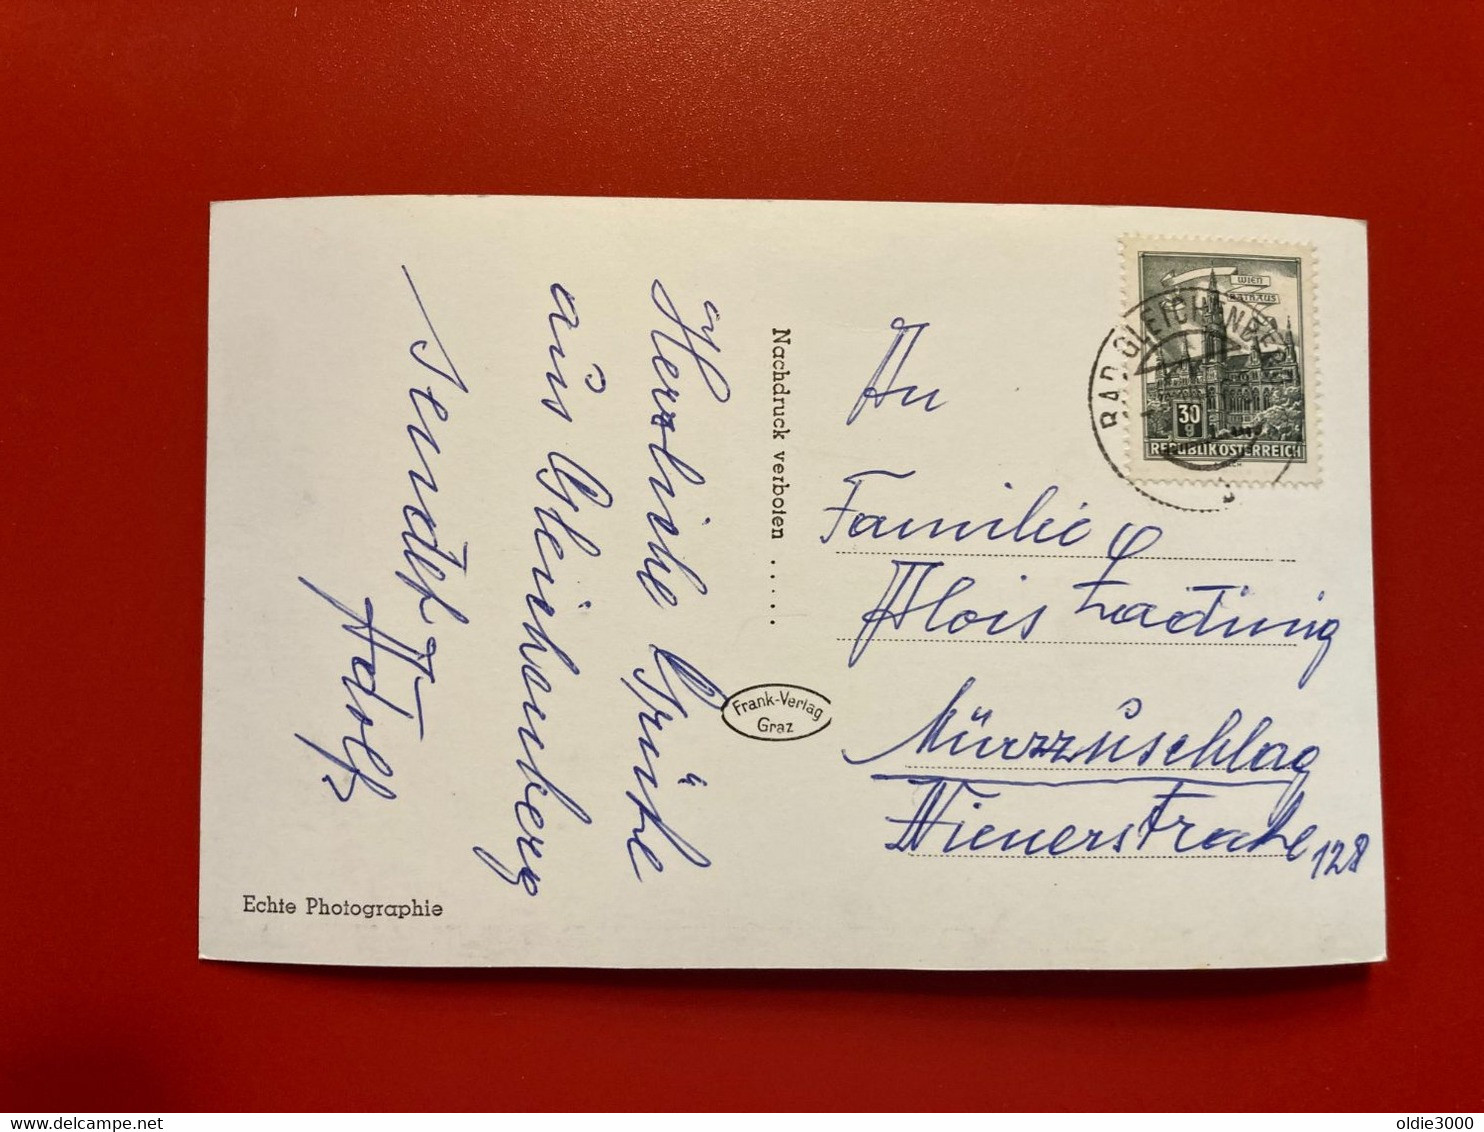 Herzliche Grüße
aus Gleichenberg
sendet
Adolf
Nachdruck verboten . . . . .
Frank-Verlag
Graz
Echte Photographie
WIEN
RATHAUS
30
g
REPUBLIK ÖSTERREICH
BAD GLEICHENBERG
An
Familie
Alois
Mürzzuschlag
Wienerstraße 128
www.delcampe.net
oldie3000